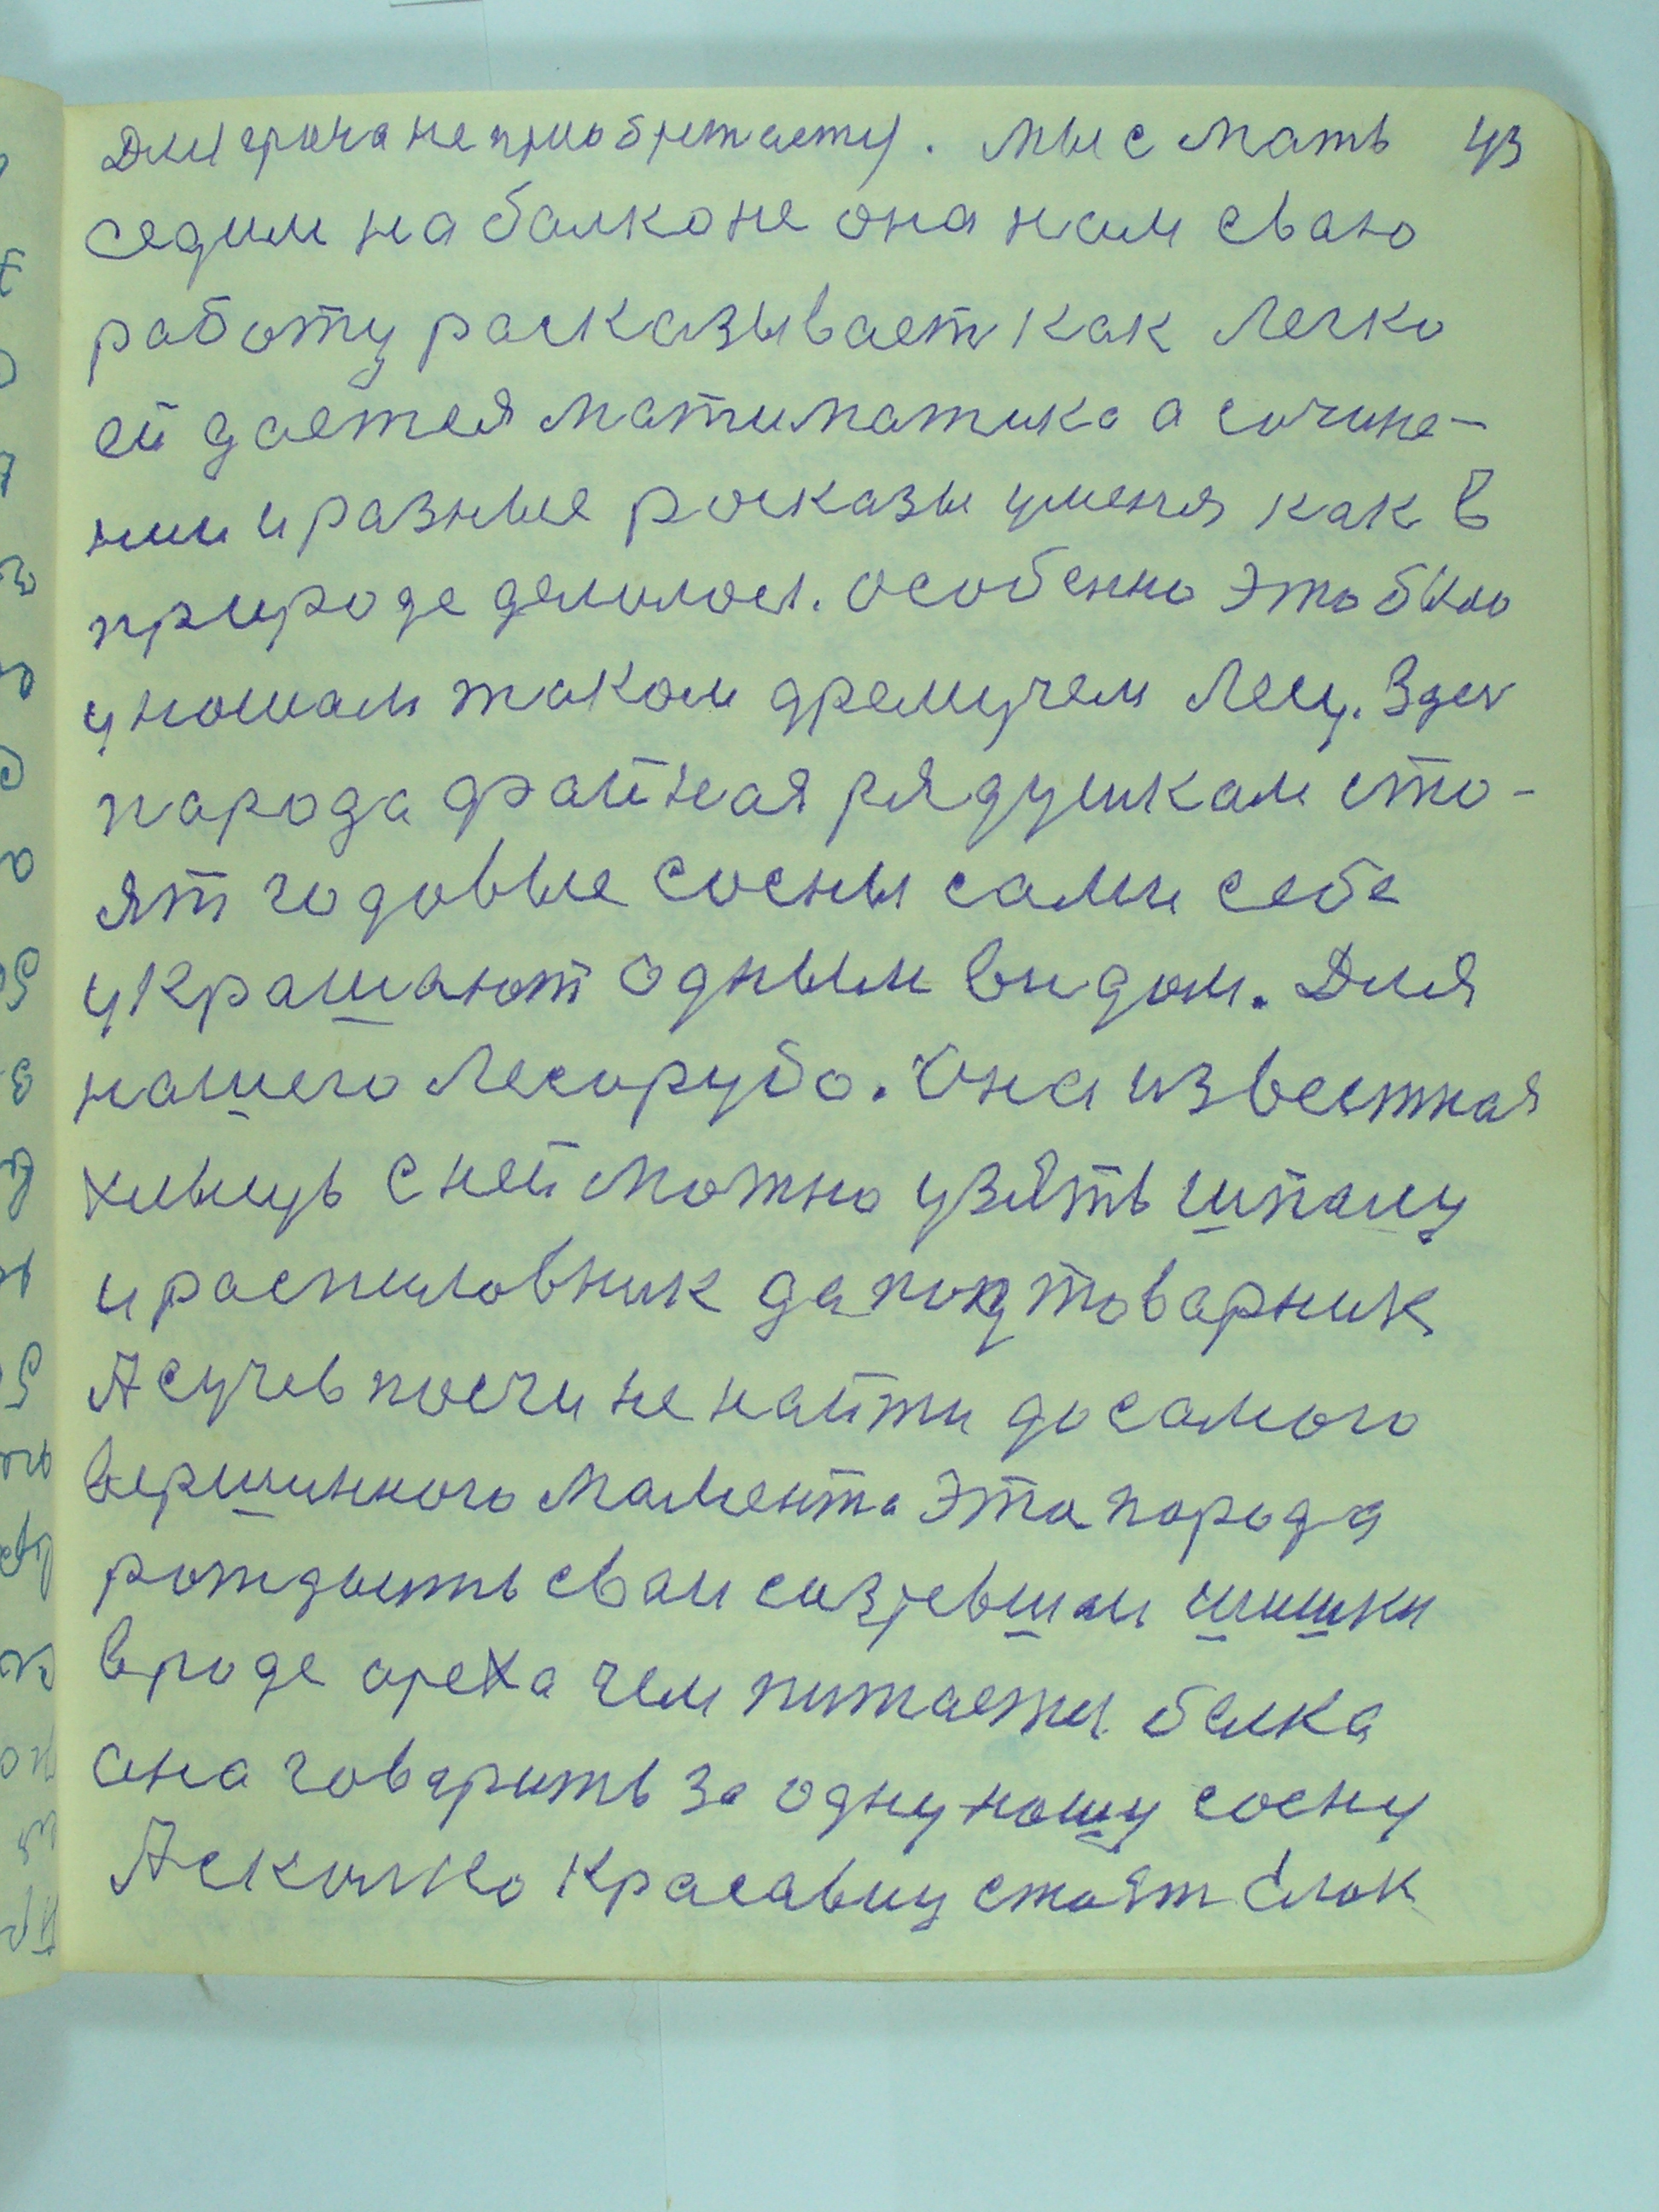 Для срока не приобретаетц. мы с мать 43
седим на балконе она нам сваю
работу расказывает как легко
ей дается матиматика а сочине-
нии и разные расказы уменя как в
природе делилося. особенно это было
у ношам таком дремучем лесу. Здес
парода файная рядушкам сто-
ят годовые сосны сами себе
украшают одным видом. Для
нашего лесоруба. Она известная
хлыщь с ней можно узять шпалу
и распиловник да подтоварник
А сучев поечи не найти до самого
вершинного мамента эта парода
рождаить сваи созревшаи шишки
вроде ореха чем питается белка
она говарить за одну ношу сосну
А сколко красавиц стоят ёлок